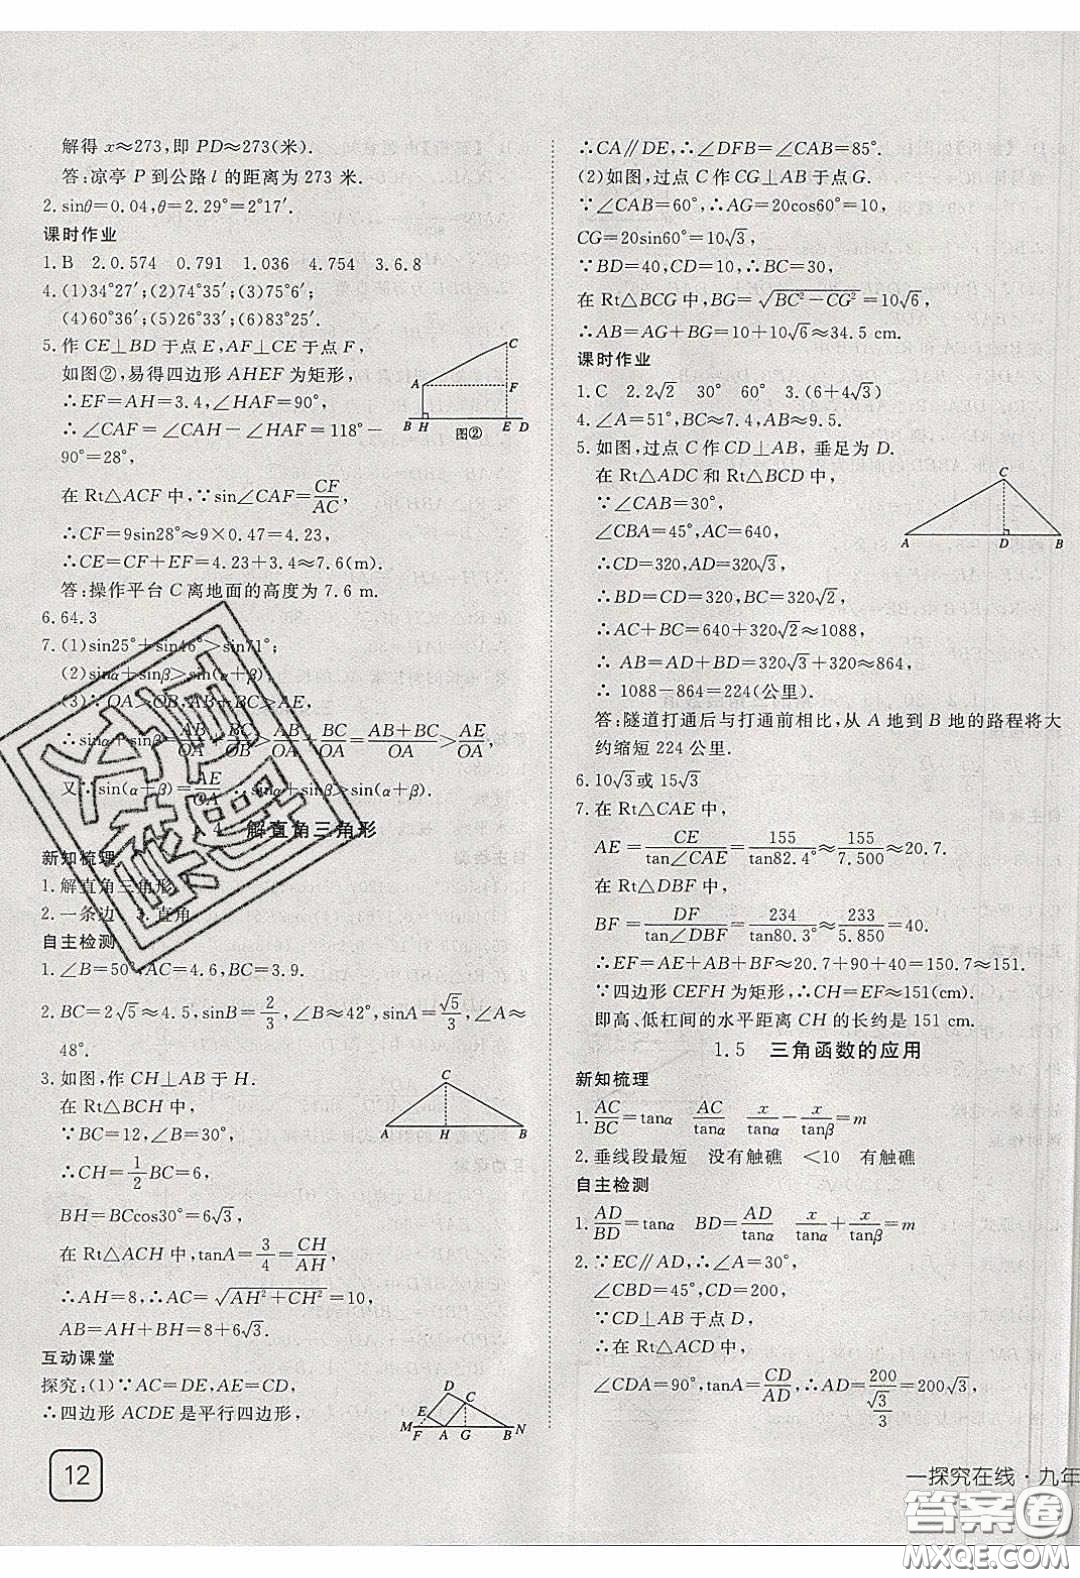 解得 x≈273,即 PD≈273(米).
答:凉亭 P 到公路 l 的距离为 273 米.
2.sinθ=0.04,θ=2.29°=2°17′.
课时作业
1.B 2.0.574 0.791 1.036 4.754 3.6.8
4.(1)34°27′;(2)74°35′;(3)75°6′;
(4)60°36′;(5)26°33′;(6)83°25′.
5.作 CE⊥BD 于点 E,AF⊥CE 于点 F,
如图②,易得四边形 AHEF 为矩形,
∴EF=AH=3.4,∠HAF=90°,
∴∠CAF=∠CAH-∠HAF=118°-
90°=28°,
C
A F
B H 图② E D
在 Rt△ACF 中,∵sin∠CAF=CF/AC,
∴CF=9sin28°≈9×0.47=4.23,
∴CE=CF+EF=4.23+3.4≈7.6(m).
答:操作平台 C 离地面的高度为 7.6 m.
6.64.3
7.(1)sin25°+sin46°>sin71°;
(2)sinα+sinβ>sin(α+β);
(3)∵OA>OB,AB+BC>AE,
∴sinα+sinβ=AB/OA+BC/OB>AB/OA+BC/OA=(AB+BC)/OA>AE/OA,
又∵sin(α+β)=AE/OA,∴sinα+sinβ>sin(α+β).
4 解直角三角形
新知梳理
1.解直角三角形
2.一条边 3.直角
自主检测
1.∠B=50°,AC=4.6,BC=3.9.
2.BC=2√5≈4.5,sinB=2/3,∠B≈42°,sinA=√5/3,∠A≈
48°.
3.如图,作 CH⊥AB 于 H.
在 Rt△BCH 中,
∵BC=12,∠B=30°,
∴CH=1/2BC=6,
BH=BCcos30°=6√3,
C
A H B
在 Rt△ACH 中,tanA=3/4=CH/AH,
∴AH=8,∴AC=√(AH²+CH²)=10,
AB=AH+BH=8+6√3.
互动课堂
探究:(1)∵AC=DE,AE=CD,
∴四边形 ACDE 是平行四边形,
D
C
E
M F A G B N
12
∴CA∥DE,∴∠DFB=∠CAB=85°.
(2)如图,过点 C 作 CG⊥AB 于点 G.
∵∠CAB=60°,∴AG=20cos60°=10,
CG=20sin60°=10√3,
∵BD=40,CD=10,∴BC=30,
在 Rt△BCG 中,BG=√(BC²-CG²)=10√6,
∴AB=AG+BG=10+10√6≈34.5 cm.
课时作业
1.C 2.2√2 30° 60° 3.(6+4√3)
4.∠A=51°,BC≈7.4,AB≈9.5.
5.如图,过点 C 作 CD⊥AB, 垂足为 D.
在 Rt△ADC 和 Rt△BCD 中,
∵∠CAB=30°,
∠CBA=45°,AC=640,
∴CD=320,AD=320√3,
∴BD=CD=320,BC=320√2,
C
A D B
∴AC+BC=640+320√2≈1088,
∴ AB=AD+BD=320√3+320≈864,
∴ 1088-864=224(公里).
答:隧道打通后与打通前相比,从 A 地到 B 地的路程将大
约缩短 224 公里.
6.10√3或 15√3
7.在 Rt△CAE 中,
AE=CE/tan∠CAE=155/tan82.4°≈155/7.500≈20.7.
在 Rt△DBF 中,
BF=DF/tan∠DBF=234/tan80.3°≈234/5.850=40.
∴EF=AE+AB+BF≈20.7+90+40=150.7≈151.
∵四边形 CEFH 为矩形,∴CH=EF≈151(cm).
即高、低杠间的水平距离 CH 的长约是 151 cm.
1.5 三角函数的应用
新知梳理
1.AC/BC=tanα AC/tanα x/tanα-x/tanβ=m
2.垂线段最短 没有触礁 <10 有触礁
自主检测
1.AD/BD=tanα BD=AD/tanα x/tanα+x/tanβ=m
2.∵EC∥AD,∴∠A=30°,
∠CBD=45°,CD=200,
∵CD⊥AB 于点 D,
∴在 Rt△ACD 中,
∠CDA=90°,tanA=CD/AD,∴AD=200/(√3/3)=200√3,
一探究在线·九年
答案卷
MXQE.COM